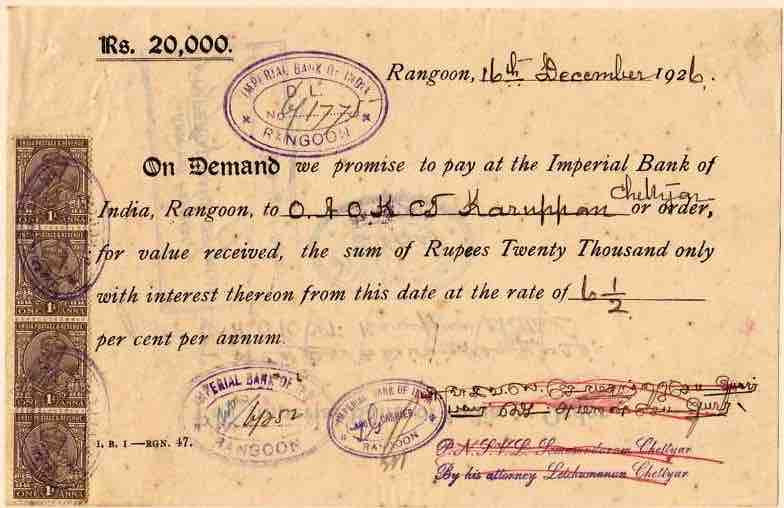 Rs. 20,000.
IMPERIAL BANK OF INDIA
D. L.
No 6/1775
RANGOON
Rangoon, 16th December 1926.
On Demand we promise to pay at the Imperial Bank of
Chettyar
India, Rangoon, to O. A. O. K. CT Karuppan or order,
for value received, the sum of Rupees Twenty Thousand only
with interest thereon from this date at the rate of 6 1/2
per cent per annum.
INDIA POSTAGE & REVENUE
ONE ANNA
INDIA POSTAGE & REVENUE
ONE ANNA
INDIA POSTAGE & REVENUE
ONE ANNA
INDIA POSTAGE & REVENUE
ONE ANNA
IMPERIAL BANK OF
RANGOON
IMPERIAL BANK OF INDIA
RANGOON
Chettyar
By his attorney Letchumanan Chettyar
I. B. I—RGN. 47.